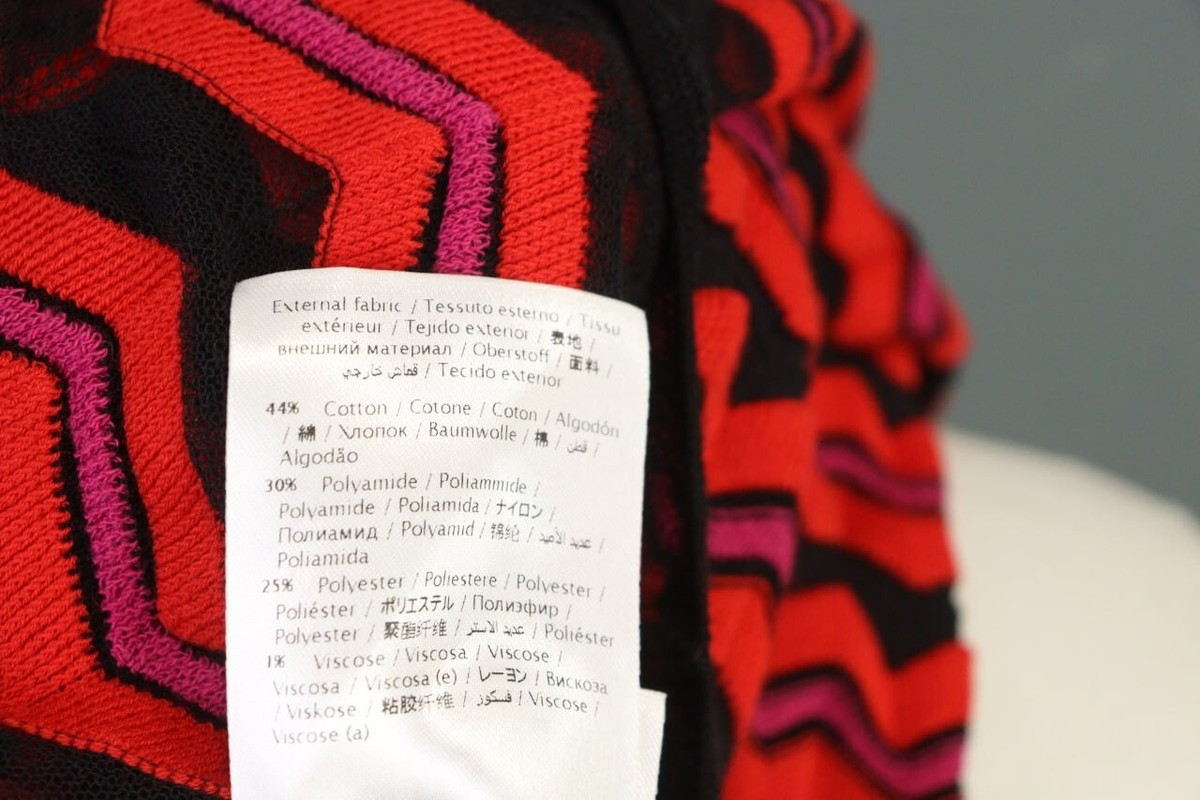 External fabric / Tessuto esterno / Tissu
extérieur / Tejido exterior / 表地 /
внешний материал / Oberstoff / 面料 /
قماش خارجي / Tecido exterior
44% Cotton / Cotone / Coton / Algodón
/ 綿 / Хлопок / Baumwolle / 棉 / قطن /
Algodão
30% Polyamide / Poliammide /
Polyamide / Poliamida / ナイロン /
Полиамид / Polyamid / 锦纶 / عديد الأميد /
Poliamida
25% Polyester / Poliestere / Polyester /
Poliéster / ポリエステル / Полиэфир /
Polyester / 聚酯纤维 / عديد الاستر / Poliéster
1% Viscose / Viscosa / Viscose /
Viscosa / Viscosa (e) / レーヨン / Вискоза
/ Viskose / 粘胶纤维 / فسكوز / Viscose /
Viscose (a)